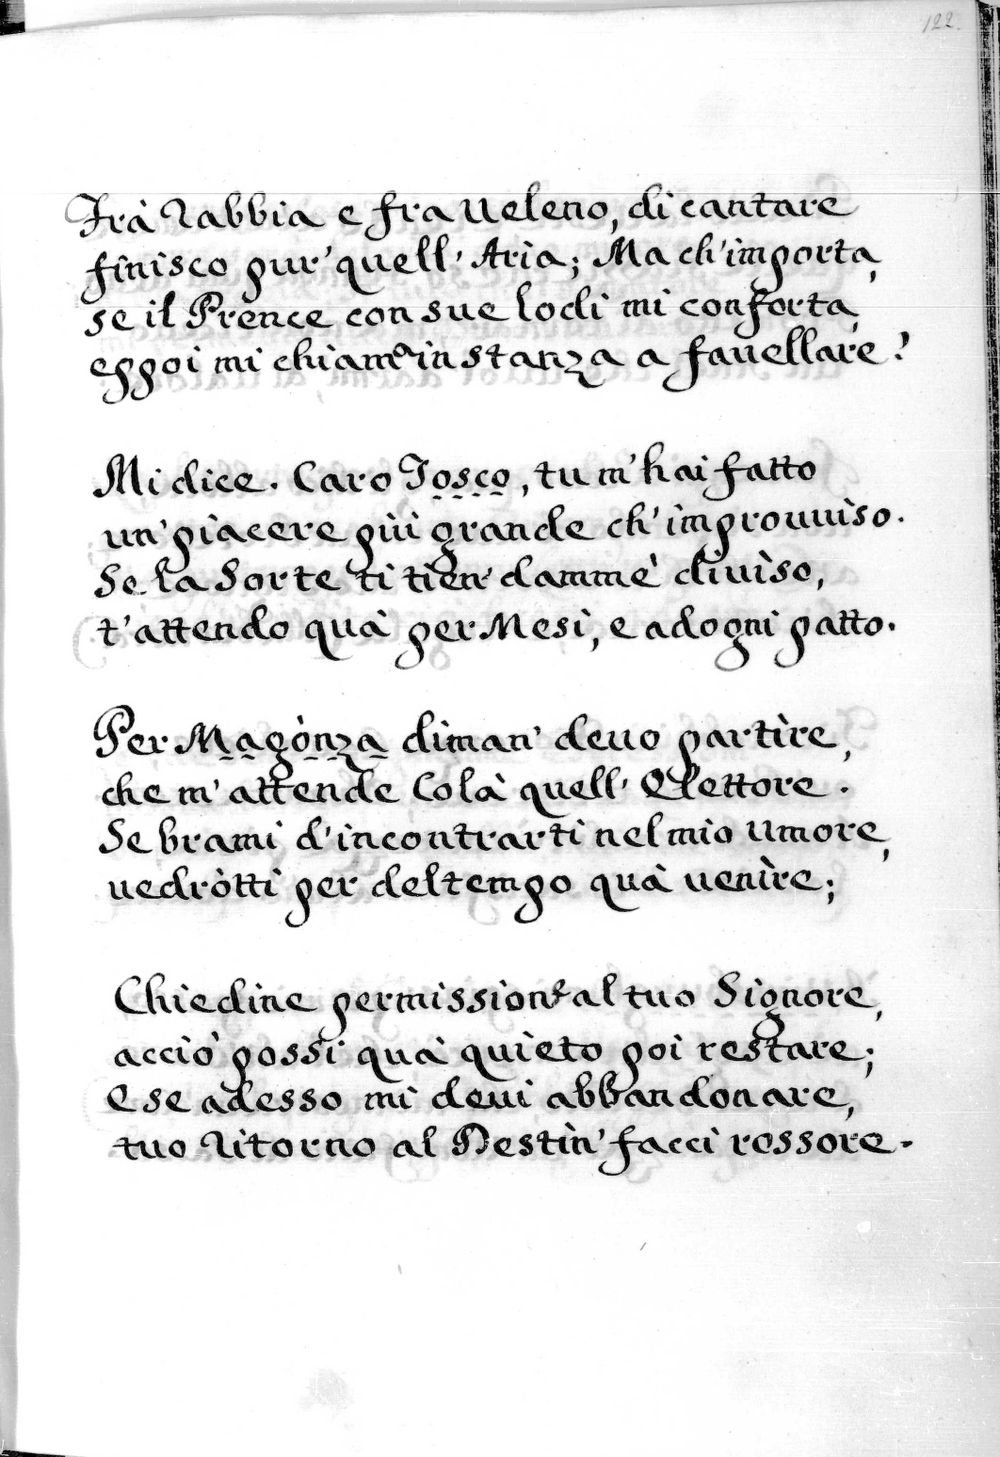 122.
Frà Rabbia e fra ueleno, di cantare
finisco pur' quell' Aria; Ma ch'importa,
se il Prence con sue lodi mi conforta,
e ppoi mi chiamª in stanza a fauellare?
Mi dice. Caro Tosco, tu m'hai fatto
un' piacere più grande ch' improuuìso.
Se la Sorte ti tien' dammè diuìso,
t'attendo quà per Mesi, e ad ogni patto.
Per Magònza dìman' deuo partìre,
che m'attende Colà quell' Elettore.
Se brami d'incontrarti nel mio Umore,
uedròtti per del tempo quà uenìre;
Chiedine permissionᵉ al tuo Signore,
acciò possi quà quieto poi restare;
E se adesso mi deui abbandonare,
tuo Ritorno al Destìn' facci rossore.